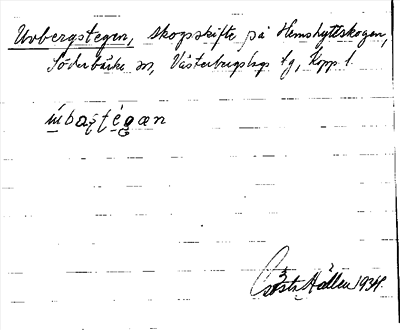 Uvbergstegen, skogsskifte på Hemshytteskogen,
Söderbärke sn, Västerbergslags tg, Kopp l.
ùbast̨égæn
Gösta Hállen 1934.